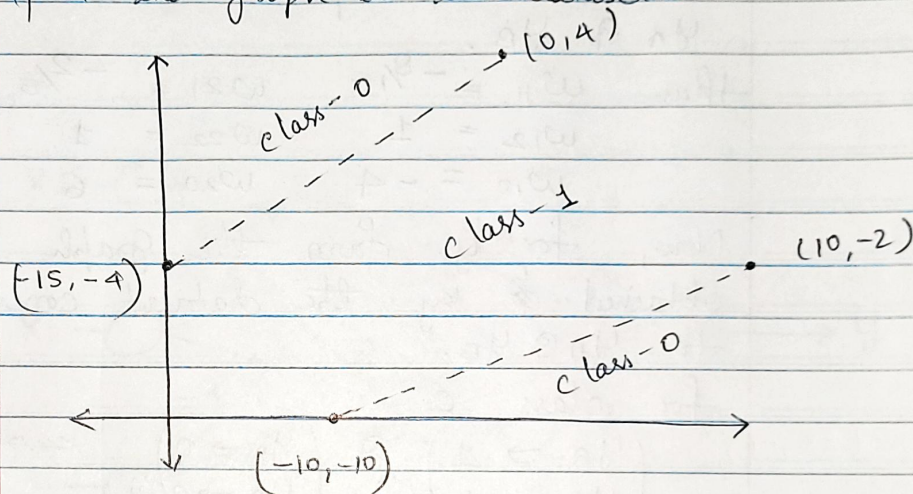 (0,4)
class-0
class-1
(10,-2)
(-15,-4)
class-0
(-10,-10)